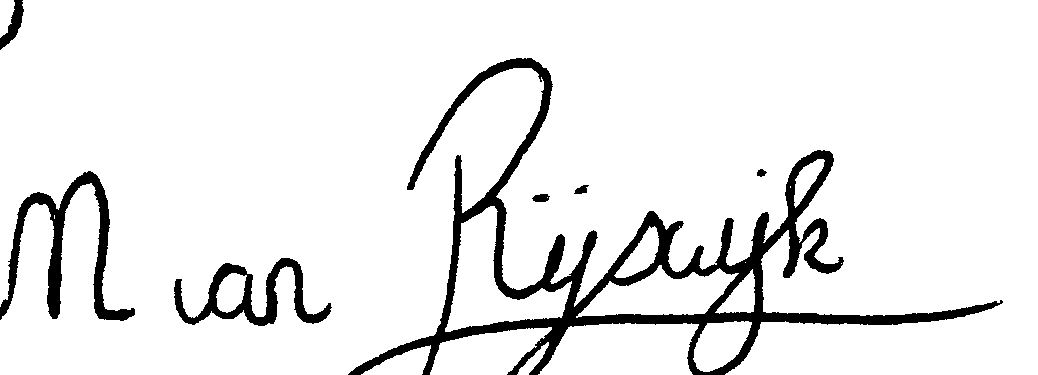 M van Rijswijk